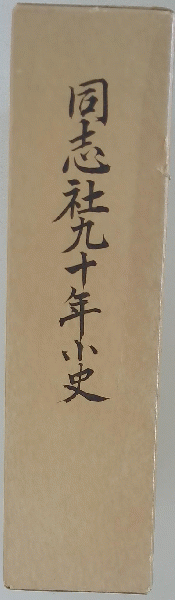 同志社九十年小史